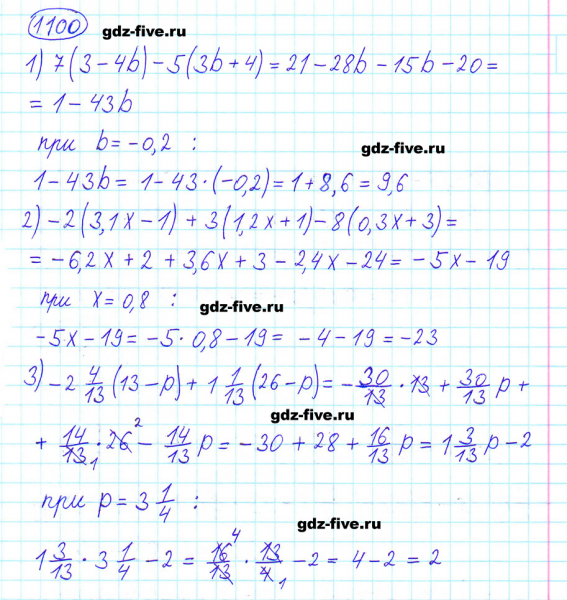 1100 gdz-five.ru
1) 7(3 − 4b) − 5(3b + 4) = 21 − 28b − 15b − 20 =
= 1 − 43b
при b = −0,2 : gdz-five.ru
1 − 43b = 1 − 43 · (−0,2) = 1 + 8,6 = 9,6
2) −2(3,1x − 1) + 3(1,2x + 1) − 8(0,3x + 3) =
= −6,2x + 2 + 3,6x + 3 − 2,4x − 24 = −5x − 19
при x = 0,8 : gdz-five.ru
−5x − 19 = −5 · 0,8 − 19 = −4 − 19 = −23
3) −2 4/13 (13 − p) + 1 1/13 (26 − p) = −30/13 · 13 + 30/13 p +
gdz-five.ru
+ 14/13 1 · 26 2 − 14/13 p = −30 + 28 + 16/13 p = 1 3/13 p − 2
при p = 3 1/4 :
gdz-five.ru
1 3/13 · 3 1/4 − 2 = 16 4/13 · 13/4 1 − 2 = 4 − 2 = 2